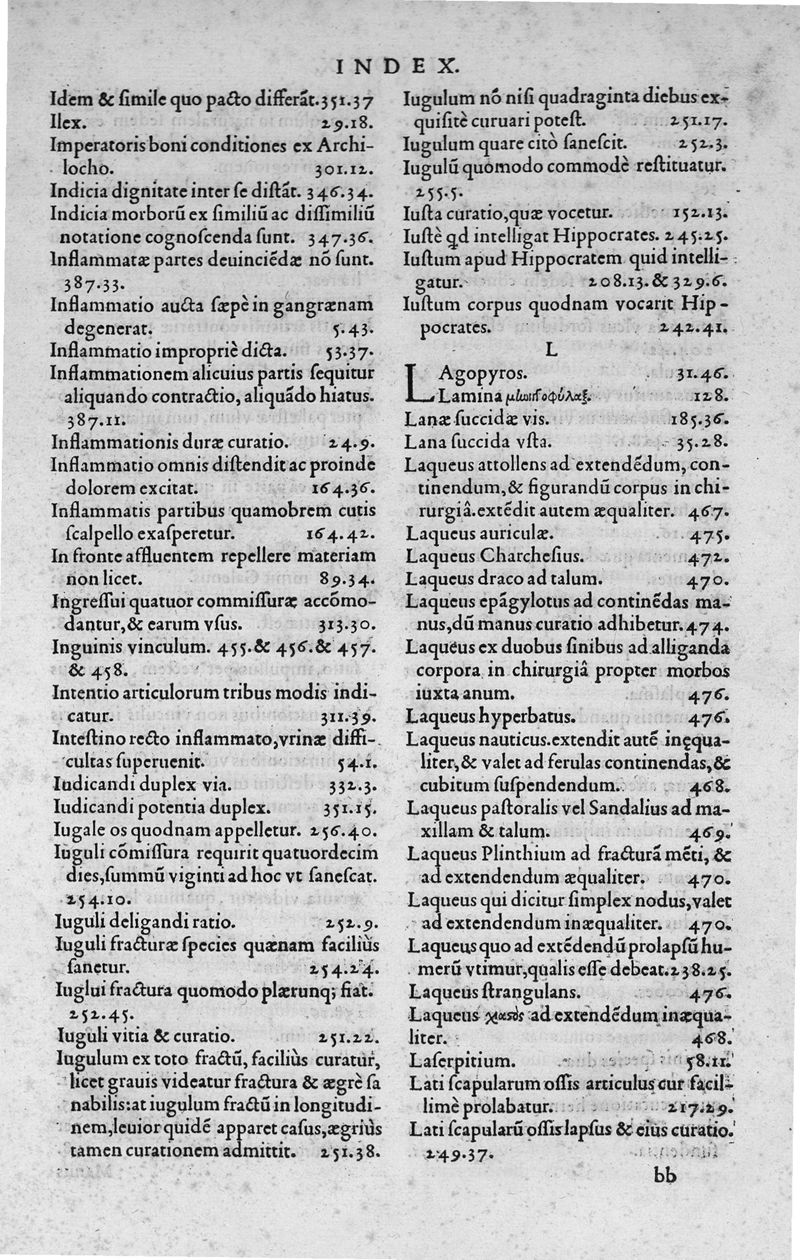 INDEX.
Idem & ſimile quo pacto differãt. 351.37
Ilex. 29.18.
Imperatoris boni conditiones ex Archi-
locho. 301.12.
Indicia dignitate inter ſe diſtãt. 346.34.
Indicia morborũ ex ſimiliũ ac diſſimiliũ
notatione cognoſcenda ſunt. 347.36.
Inflammatæ partes deuinciẽdæ nõ ſunt.
387.33.
Inflammatio aucta ſæpè in gangrænam
degenerat. 5.43.
Inflammatio impropriè dicta. 53.37.
Inflammationem alicuius partis ſequitur
aliquando contractio, aliquãdo hiatus.
387.11.
Inflammationis duræ curatio. 24.9.
Inflammatio omnis diſtendit ac proinde
dolorem excitat. 164.36.
Inflammatis partibus quamobrem cutis
ſcalpello exaſperetur. 164.42.
In fronte affluentem repellere materiam
non licet. 89.34.
Ingreſſui quatuor commiſſuræ accõmo-
dantur, & earum vſus. 313.30.
Inguinis vinculum. 455. & 456. & 457.
& 458.
Intentio articulorum tribus modis indi-
catur. 311.39.
Inteſtino recto inflammato, vrinæ diffi-
cultas ſuperuenit. 54.1.
Iudicandi duplex via. 332.3.
Iudicandi potentia duplex. 351.15.
Iugale os quodnam appelletur. 256.40.
Iuguli cõmiſſura requirit quatuordecim
dies, ſummũ viginti ad hoc vt ſaneſcat.
254.10.
Iuguli deligandi ratio. 252.9.
Iuguli fracturæ ſpecies quænam faciliùs
ſanetur. 254.24.
Iuglui fractura quomodo plærunq; fiat.
252.45.
Iuguli vitia & curatio. 251.22.
Iugulum ex toto fractũ, faciliùs curatur,
licet grauis videatur fractura & ægrè ſa
nabilis: at iugulum fractũ in longitudi-
nem, leuior quidẽ apparet caſus, ægriùs
tamen curationem admittit. 251.38.
Iugulum nõ niſi quadraginta diebus ex-
quiſitè curuari poteſt. 251.17.
Iugulum quare citò ſaneſcit. 252.3.
Iugulũ quomodo commodè reſtituatur.
255.5.
Iuſta curatio, quæ vocetur. 152.13.
Iuſtè qd intelligat Hippocrates. 245.25.
Iuſtum apud Hippocratem quid intelli-
gatur. 208.13. & 329.6.
Iuſtum corpus quodnam vocarit Hip-
pocrates. 242.41.
L
LAgopyros. 31.46.
Lamina 128.
Lanæ ſuccidæ vis. 185.36.
Lana ſuccida vſta. 35.28.
Laqueus attollens ad extendẽdum, con-
tinendum, & figurandũ corpus in chi-
rurgiâ. extẽdit autem æqualiter. 467.
Laqueus auriculæ. 475.
Laqueus Charcheſius. 472.
Laqueus draco ad talum. 470.
Laqueus epãgylotus ad continẽdas ma-
nus, dũ manus curatio adhibetur. 474.
Laqueus ex duobus ſinibus ad alliganda
corpora in chirurgiâ propter morbos
iuxta anum. 476.
Laqueus hyperbatus. 476.
Laqueus nauticus. extendit autẽ inęqua-
liter, & valet ad ferulas continendas, &
cubitum ſuſpendendum. 468.
Laqueus paſtoralis vel Sandalius ad ma-
xillam & talum. 469.
Laqueus Plinthium ad fracturã mẽti, &
ad extendendum æqualiter. 470.
Laqueus qui dicitur ſimplex nodus, valet
ad extendendum inæqualiter. 470.
Laqueus quo ad extẽdendũ prolapſũ hu-
merũ vtimur, qualis eſſe debeat. 238.25.
Laqueus ſtrangulans. 476.
Laqueus ad extendẽdum inæqua-
liter. 468.
Laſerpitium. 58.11.
Lati ſcapularum oſſis articulus cur facil-
limè prolabatur. 217.29.
Lati ſcapularũ oſſis lapſus & eius curatio.
249.37.
bb